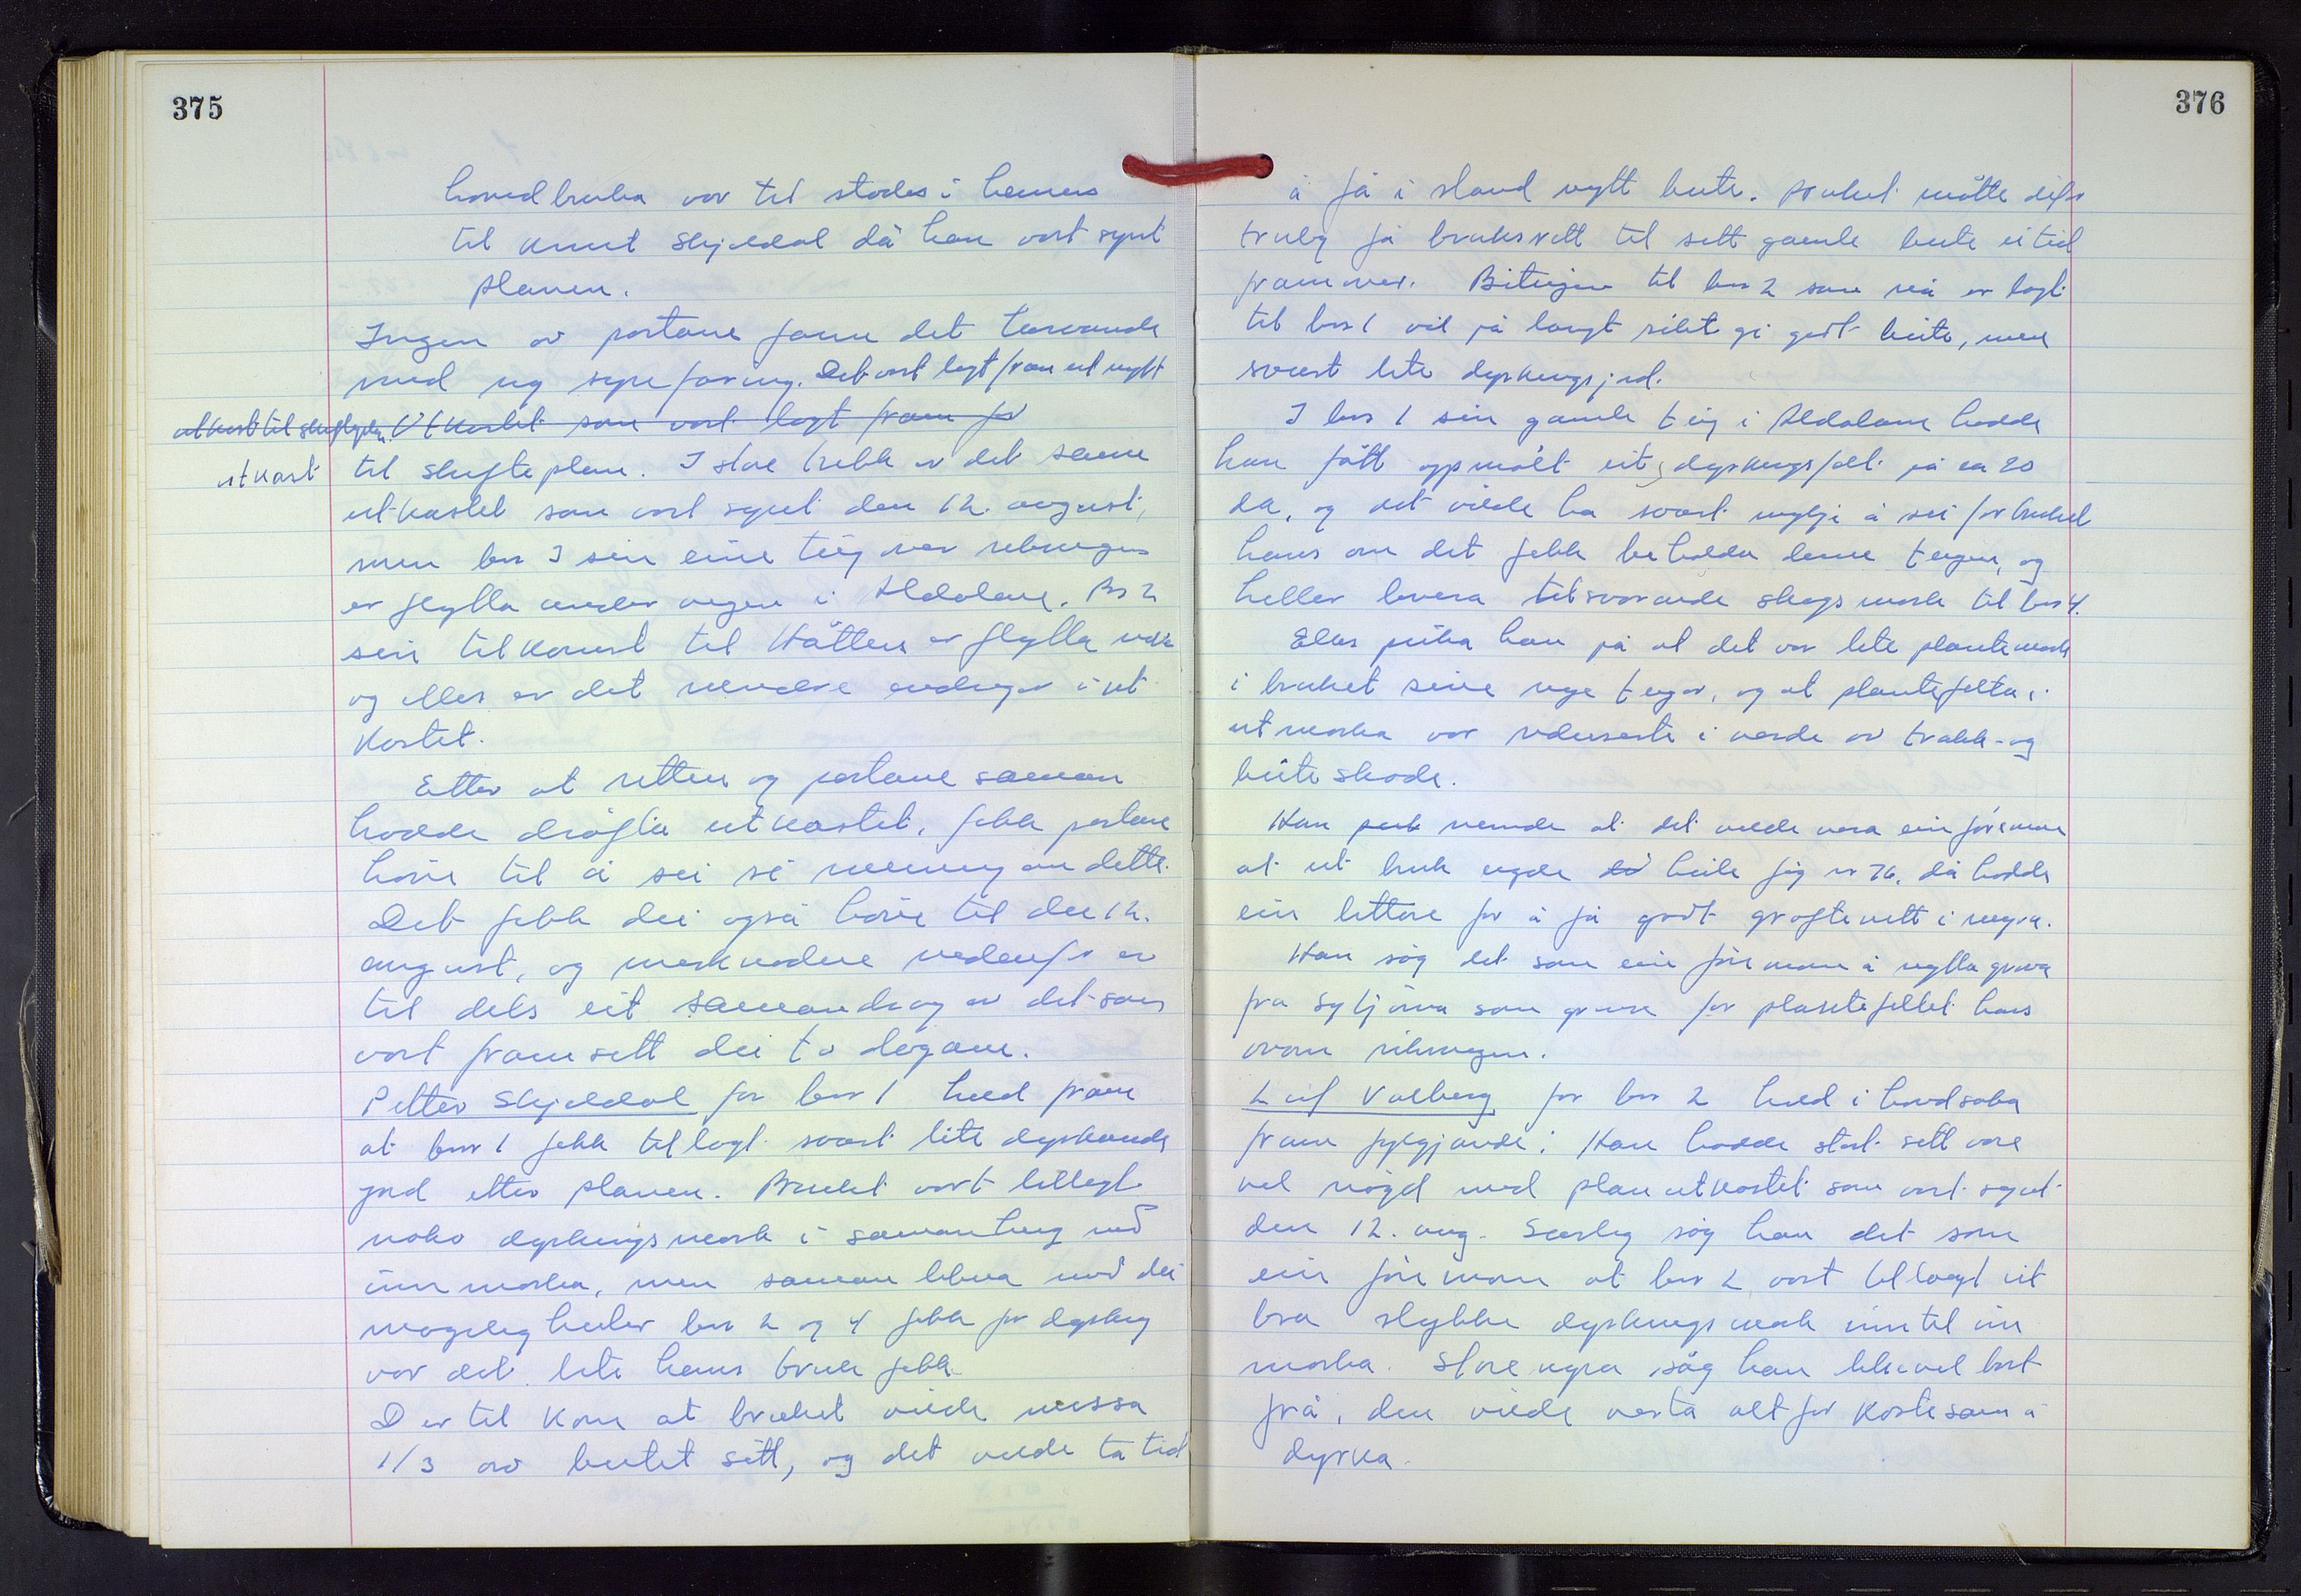 375
hovudbruka var til stades i heimen
til Knut Skjeldal då han vart synt
planen.
Ingen av partane fann det turvande
med ny synfaring. Det vart lagt fram eit nytt
utkast til skifteplan. Utkastet som vart lagt fram for
utkast til skifteplan. I store trekk er det same
utkastet som vart synt den 12. august,
men bnr 1 sin eine teig ner
er flytta under vegen i Aldalane. Bnr 2
sin tilkomst til Håtten er flytta
og elles er det mindre endringar i ut-
kastet.
Etter at retten og partane saman
hadde drøfta utkastet, fekk partane
høve til å sei si meining om dette.
Det fekk dei også høve til den 12.
august, og merknadene nedanfor er
til dels eit samandrag av det som
vart framsett dei to dagane.
Petter Skjeldal for bnr 1 heldt fram
at bnr 1 fekk tillagt svært lite dyrkande
jord etter planen. Bruket vart tillagt
noko dyrkingsmark i samanheng med
innmarka, men samanlikna med dei
mogelegheiter bnr 2 og 4 fekk for dyrking
var det lite hans bruk fekk.
Dertil kom at bruket ville missa
1/3 av beitet sitt, og det ville ta tid
376
å få i stand nytt beite. Bruket måtte difor
truleg få bruksrett til sitt gamle beite ei tid
framover. Beiteigen til bnr 2 som nå er lagt
til bnr 1 vil på langt sikt gi godt beite, men
svært lite dyrkingsjord.
I bnr 1 sin gamle teig i Aldalane hadde
han fått oppmålt eit dyrkingsfelt på ca 20
da, og det ville ha svært mykje å sei for bruket
hans om det fekk behalda denne teigen, og
heller levera tilsvarande skogsmark til bnr 4.
Elles peika han på at det var lite plantemark
i bruket sine nye teigar, og at plantefelta i
utmarka var reduserte i verde av trakk- og
beiteskade.
Han peik nemnde at det ville vera ein føremon
at eit bruk eigde heile fig nr 76, då hadde
ein lettare for å få godt grøfterett i myra.
Han såg det som ein føremon å nytta grova
frå Sytjörna som grense for plantefeltet hans
ovom riksvegen.
Leif Valberg for bnr 2 heldt i hovudsaka
fram fylgjande: Han hadde stort sett vore
vel nøgd med planutkastet som vart synt
den 12. aug. Særleg såg han det som
ein føremon at bnr 2 vart tillagt eit
bra stykke dyrkingsmark inntil inn-
marka. Storemyra såg han likevel bort
frå, den ville verta alt for kostesam å
dyrka.